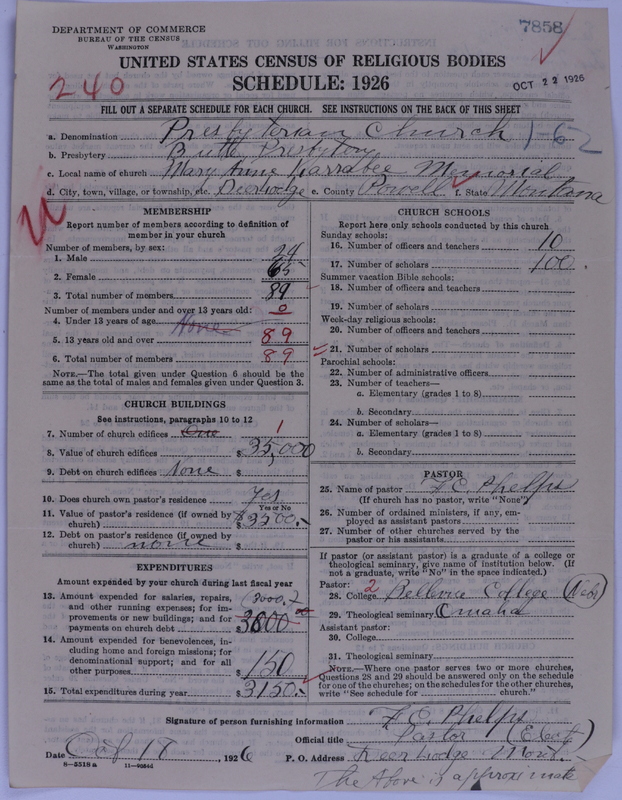 DEPARTMENT OF COMMERCE
BUREAU OF THE CENSUS
WASHINGTON
7858
UNITED STATES CENSUS OF RELIGIOUS BODIES
SCHEDULE: 1926
240
OCT 22 1926
FILL OUT A SEPARATE SCHEDULE FOR EACH CHURCH. SEE INSTRUCTIONS ON THE BACK OF THIS SHEET
a. Denomination Presbyterian Church 1-62
b. Presbytery Butte Presbytery
c. Local name of church Mary Anne Larrabee Memorial
d. City, town, village, or township, etc. Deerlodge e. County Powell f. State Montana
MEMBERSHIP
Report number of members according to definition of member in your church
Number of members, by sex:
1. Male 24
2. Female 65
3. Total number of members 89
Number of members under and over 13 years old:
4. Under 13 years of age None 0
5. 13 years old and over 89
6. Total number of members 89
NOTE.—The total given under Question 6 should be the same as the total of males and females given under Question 3.
CHURCH BUILDINGS
See instructions, paragraphs 10 to 12
7. Number of church edifices One 1
8. Value of church edifices $ 35,000
9. Debt on church edifices None $
10. Does church own pastor's residence Yes
Yes or No
11. Value of pastor's residence (if owned by church) $3500.-
12. Debt on pastor's residence (if owned by church) none $
EXPENDITURES
Amount expended by your church during last fiscal year
13. Amount expended for salaries, repairs, and other running expenses; for improvements or new buildings; and for payments on church debt 3000. $ 3000
14. Amount expended for benevolences, including home and foreign missions; for denominational support; and for all other purposes $ 150
15. Total expenditures during year $ 3150.-
CHURCH SCHOOLS
Report here only schools conducted by this church
Sunday schools:
16. Number of officers and teachers 10
17. Number of scholars 100
Summer vacation Bible schools:
18. Number of officers and teachers
19. Number of scholars
Week-day religious schools:
20. Number of officers and teachers
21. Number of scholars
Parochial schools:
22. Number of administrative officers
23. Number of teachers—
a. Elementary (grades 1 to 8)
b. Secondary
24. Number of scholars—
a. Elementary (grades 1 to 8)
b. Secondary
PASTOR
25. Name of pastor F. C. Phelps
(If church has no pastor, write "None")
26. Number of ordained ministers, if any, employed as assistant pastors
27. Number of other churches served by the pastor or his assistants
If pastor (or assistant pastor) is a graduate of a college or theological seminary, give name of institution below. (If not a graduate, write "No" in the space indicated.)
Pastor: 2
28. College Bellevue College (Neb)
29. Theological seminary Omaha
Assistant pastor:
30. College
31. Theological seminary
NOTE.—Where one pastor serves two or more churches, Questions 28 and 29 should be answered only on the schedule for one of the churches; on the schedules for the other churches, write "See schedule for church."
Signature of person furnishing information F. C. Phelps
Official title Pastor (Elect)
Date Oct 18, 1926 P. O. Address Deerlodge Mont.
8-5318 a
The above is approximate